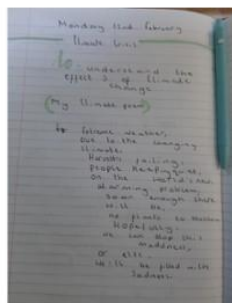 Monday 22nd February
Climate Crisis
lo. understand the
effects of climate
change
My Climate poem
Extreme weather,
Due to the changing
climate.
failing,
people keeping quiet,
On the
alarming problem,
Soon enough there
will be,
no plants to
Hopefully,
we can stop this
madness,
Or else
will be filled with
Sadness